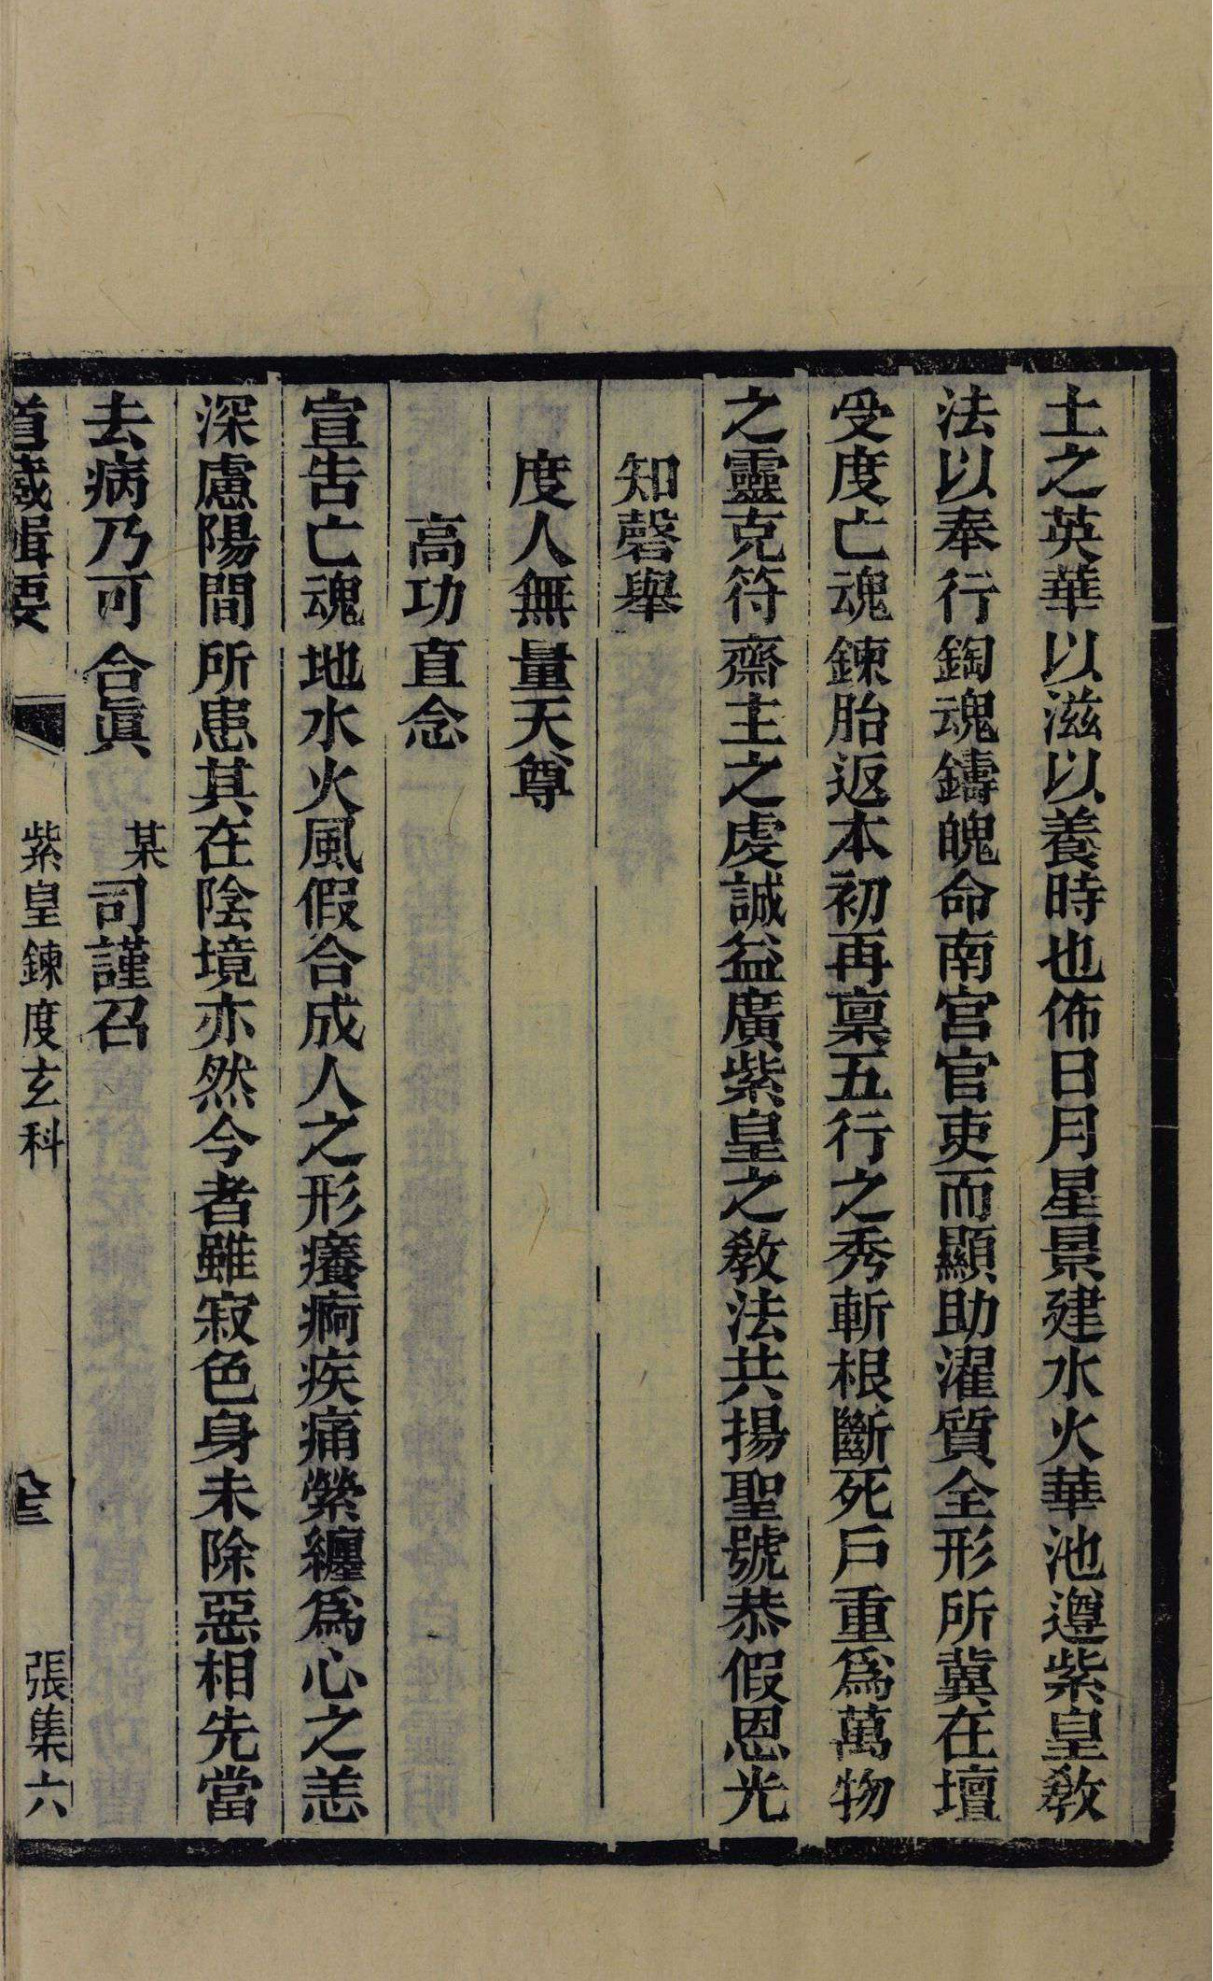 土之英華以滋以養時也佈日月星景建水火華池遵紫皇教
法以奉行鍧魂鑄魄命南宮官吏而顯助濯質全形所冀在壇
受度亡魂鍊胎返本初再禀五行之秀斬根斷死戶重爲萬物
之靈克符齋主之虔誠益廣紫皇之教法共揚聖號恭假恩光
知磬舉
度人無量天尊
高功直念
宣告亡魂地水火風假合成人之形癢痾疾痛縈纏爲心之恙
深慮陽間所患其在陰境亦然今者雖寂色身未除惡相先當
去病乃可合眞 某 司謹召
道藏輯要 紫皇鍊度玄科 張集六